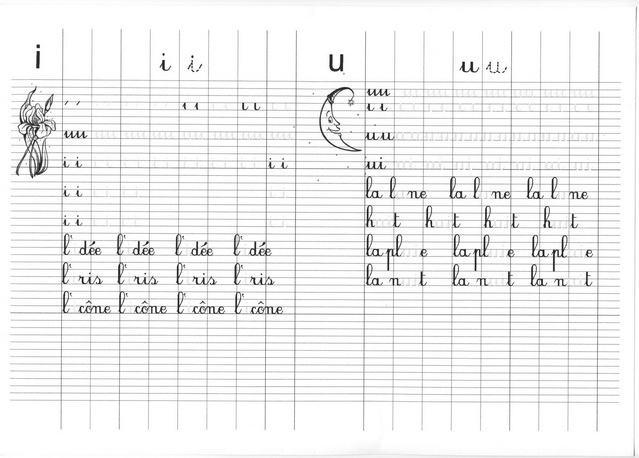 i
i i
ı ı ıı
uu
i i i i
i i
i i
l' dée l' dée l' dée l' dée
l' ris l' ris l' ris l' ris
l' cône l' cône l' cône l' cône
u
u u
uu
ı ı
u u
ui
la l ne la l ne la l ne
h t h t h t h t
la pl e la pl e la pl e
la n t la n t la n t